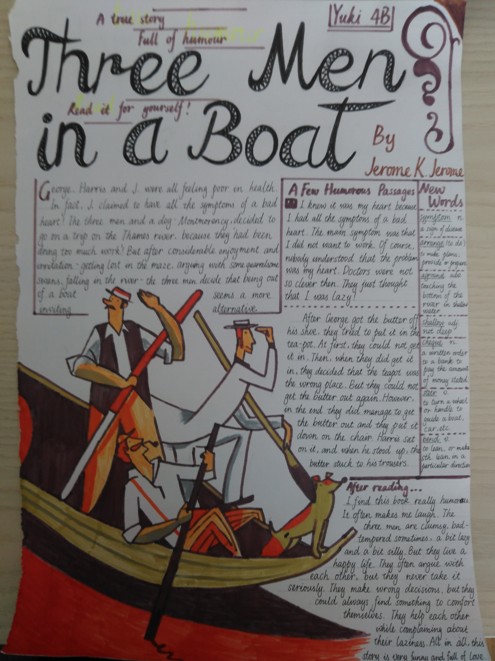 A true story
Full of humour
Yuki 4B
Three Men
Read it for yourself!
in a Boat
By
Jerome K. Jerome
George, Harris and J. were all feeling poor in health.
In fact, J. claimed to have all the symptoms of a bad
heart! The three men and a dog, Montmorency, decided to
go on a trip on the Thames river, because they had been
doing too much work! But after considerable enjoyment and
irritation - getting lost in the maze, arguing with some quarrelsome
swans, falling in the river - the three men decide that being out
of a boat seems a more
inviting alternative.
A Few Humorous Passages
I knew it was my heart because
I had all the symptoms of a bad
heart. The main symptom was that
I did not want to work. Of course,
nobody understood that the problem
was my heart. Doctors were not
so clever then. They just thought
that I was lazy!
After George got the butter off
his shoe, they tried to put it in the
tea-pot. At first, they could not get
it in. Then, when they did get it
in, they decided that the teapot was
the wrong place. But they could not
get the butter out again. However,
in the end they did manage to get
the butter out and they put it
down on the chair. Harris sat
on it, and when he stood up, the
butter stuck to his trousers.
New
Words
symptom n.
a sign of disease
arrange (to do)
to make plans,
provide or prepare
aground adv.
touching the
bottom of the
river in shallow
water
shallow adj.
not deep
cheque n.
a written order
to a bank to
pay the amount
of money stated
steer v.
to turn a wheel
or handle to
guide a boat,
car, etc.
bend v.
to lean, or make
sth. lean, in a
particular direction
After reading...
I find this book really humorous.
It often makes me laugh. The
three men are clumsy, bad-
tempered sometimes, a bit lazy
and a bit silly. But they live a
happy life. They often argue with
each other, but they never take it
seriously. They make wrong decisions, but they
could always find something to comfort
themselves. They help each other
while complaining about
their laziness. All in all, this
story is very funny and full of love.